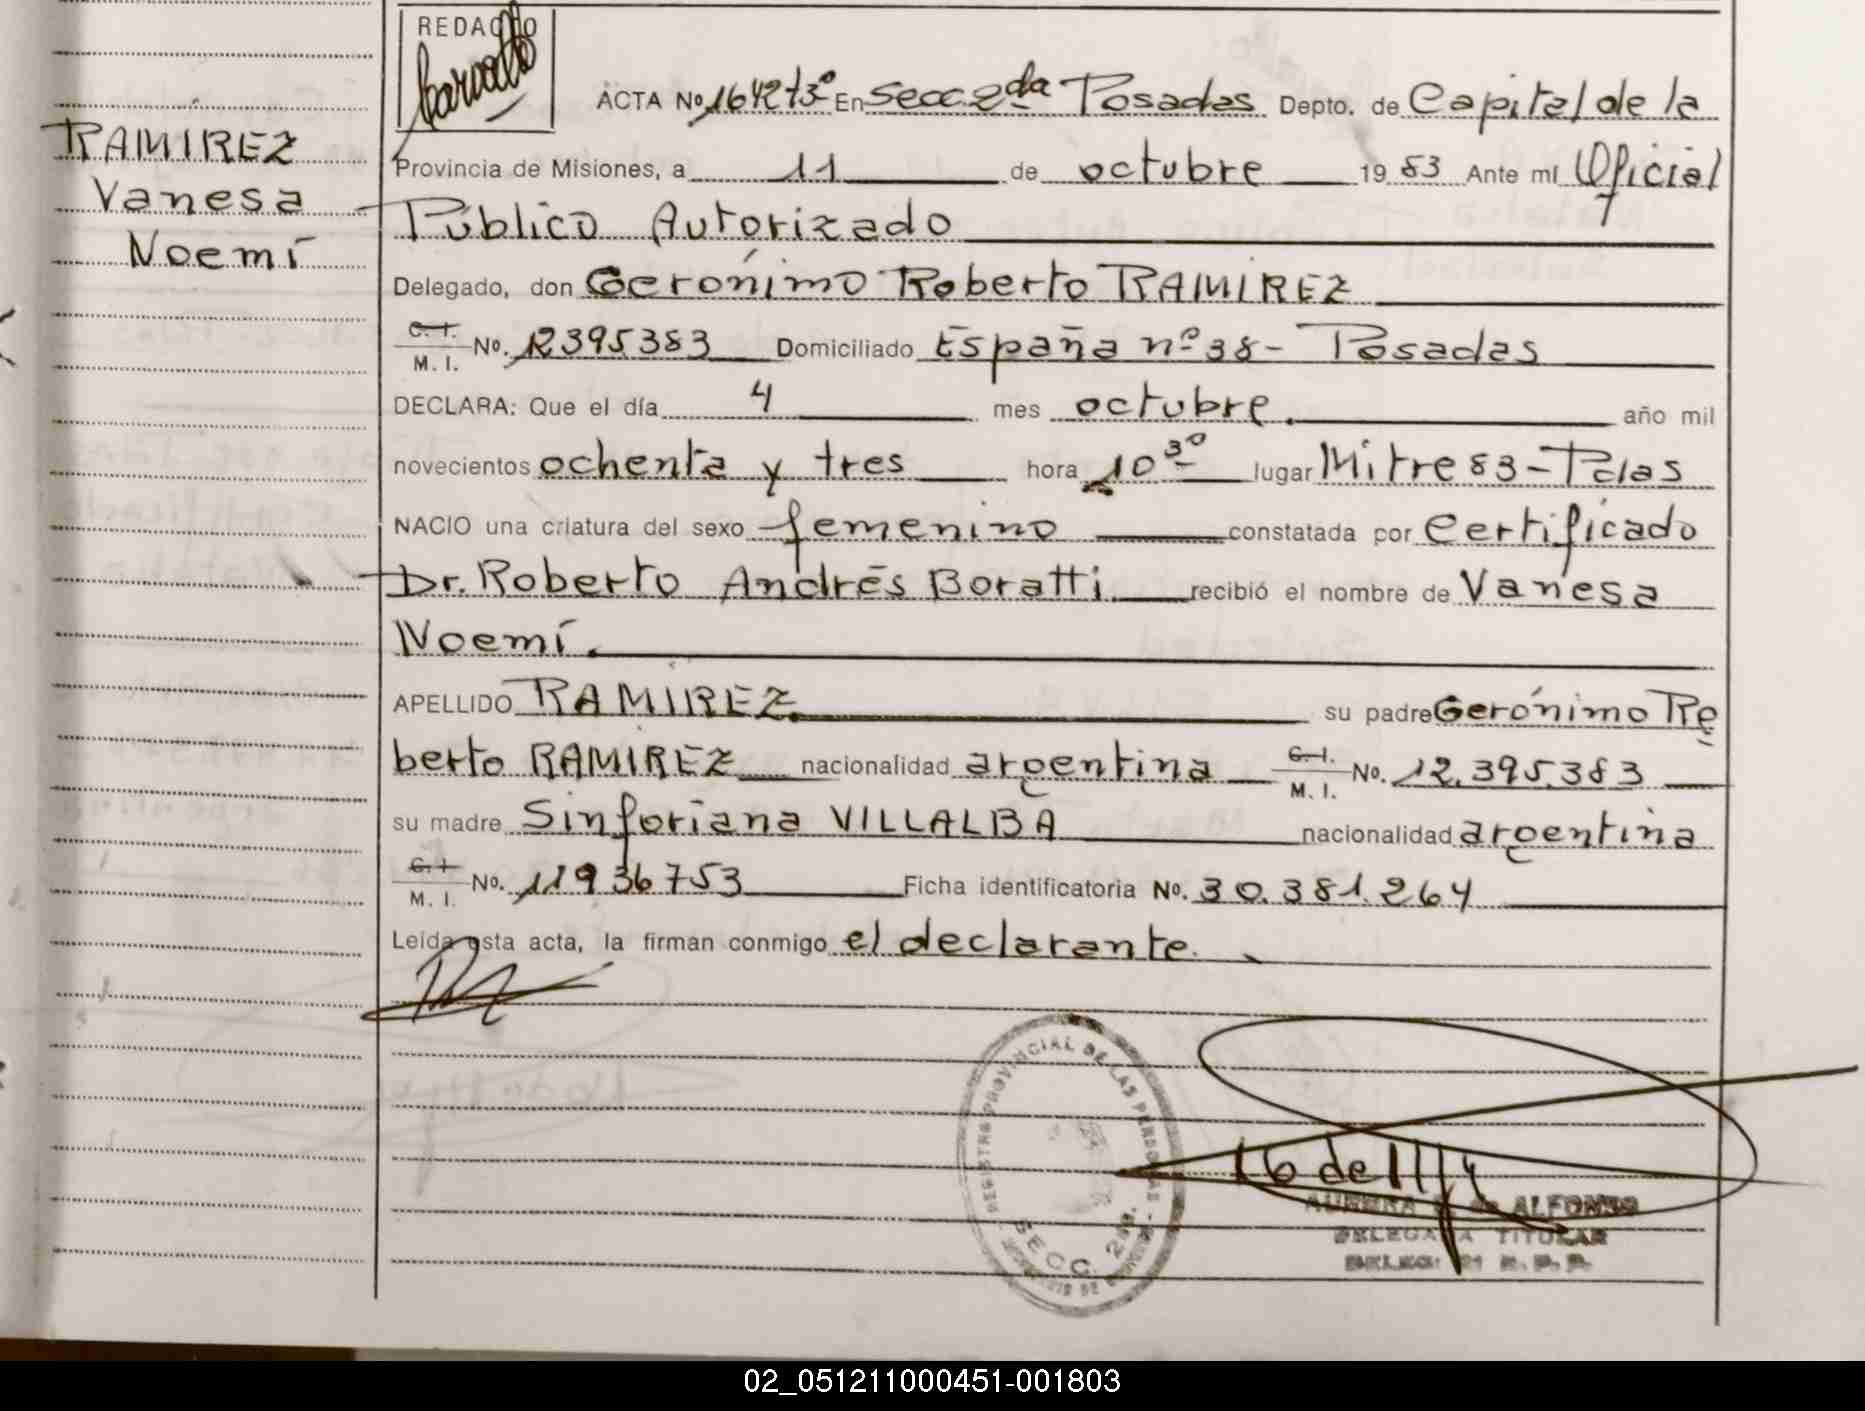 REDACTO
ACTA Nº 1642 Tº 3º En Secc. 2da Posadas Depto. de Capital de la
RAMIREZ
Provincia de Misiones, a 11 de octubre 1983 Ante mí Oficial
Vanesa
Público Autorizado
Noemí
Delegado, don Gerónimo Roberto RAMIREZ
C. I.
M. I. No. 12395383 Domiciliado España nº 38 - Posadas
DECLARA: Que el día 4 mes octubre. año mil
novecientos ochenta y tres hora 10 30 lugar Mitre 83 - Pdas
NACIO una criatura del sexo femenino constatada por Certificado
Dr. Roberto Andrés Boratti recibió el nombre de Vanesa
Noemí.
APELLIDO RAMIREZ su padre Gerónimo Ro
berto RAMIREZ nacionalidad argentina C. I.
M. I. No. 12.395.383
su madre Sinforiana VILLALBA nacionalidad argentina
C. I.
M. I. No. 11936753 Ficha identificatoria No. 30.381.264
Leída esta acta, la firman conmigo el declarante.
REGISTRO PROVINCIAL DE LAS PERSONAS
SECC. 2da.
ALFONSO
DELEGADA TITULAR
02_051211000451-001803